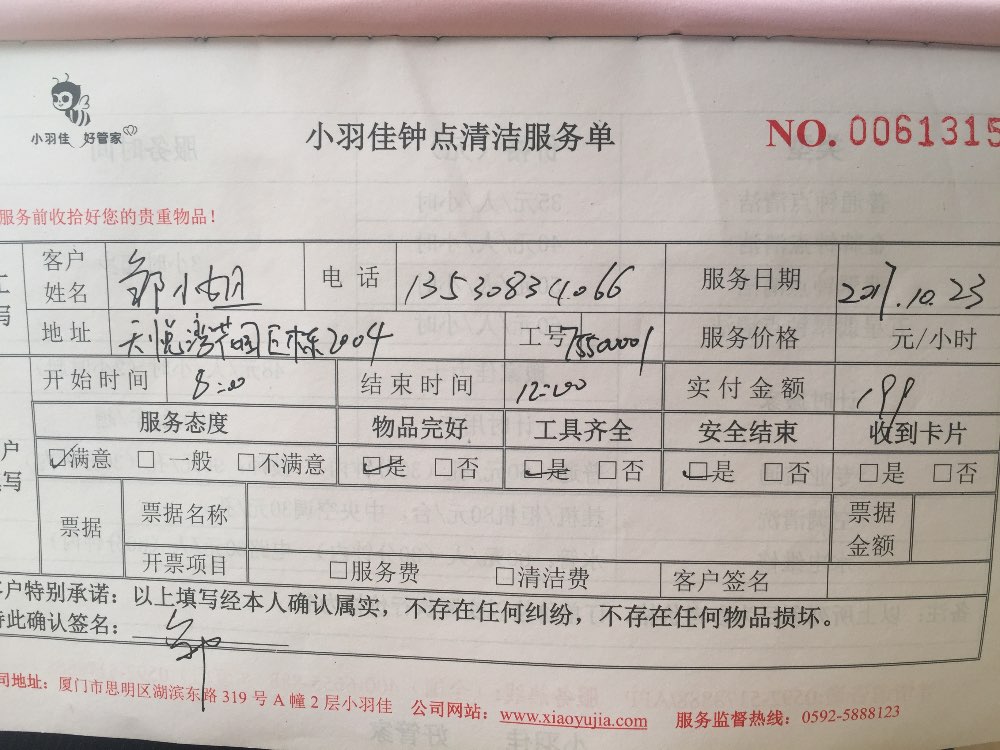 小羽佳 好管家
小羽佳钟点清洁服务单
NO. 0061315
服务前收拾好您的贵重物品！
写
客户姓名 邹小姐 电话 13530834066 服务日期 2017.10.23
地址 天悦湾花园E栋2004 工号 75500001 服务价格 元/小时
开始时间 8:00 结束时间 12:00 实付金额 199
服务态度 物品完好 工具齐全 安全结束 收到卡片
户
写
☑满意 □一般 □不满意 ☑是 □否 ☑是 □否 ☑是 □否 □是 □否
票据 票据名称 票据金额
开票项目 □服务费 □清洁费 客户签名
客户特别承诺：以上填写经本人确认属实，不存在任何纠纷，不存在任何物品损坏。
此确认签名： 邹
司地址：厦门市思明区湖滨东路 319 号 A 幢 2 层小羽佳 公司网站：www.xiaoyujia.com 服务监督热线：0592-5888123